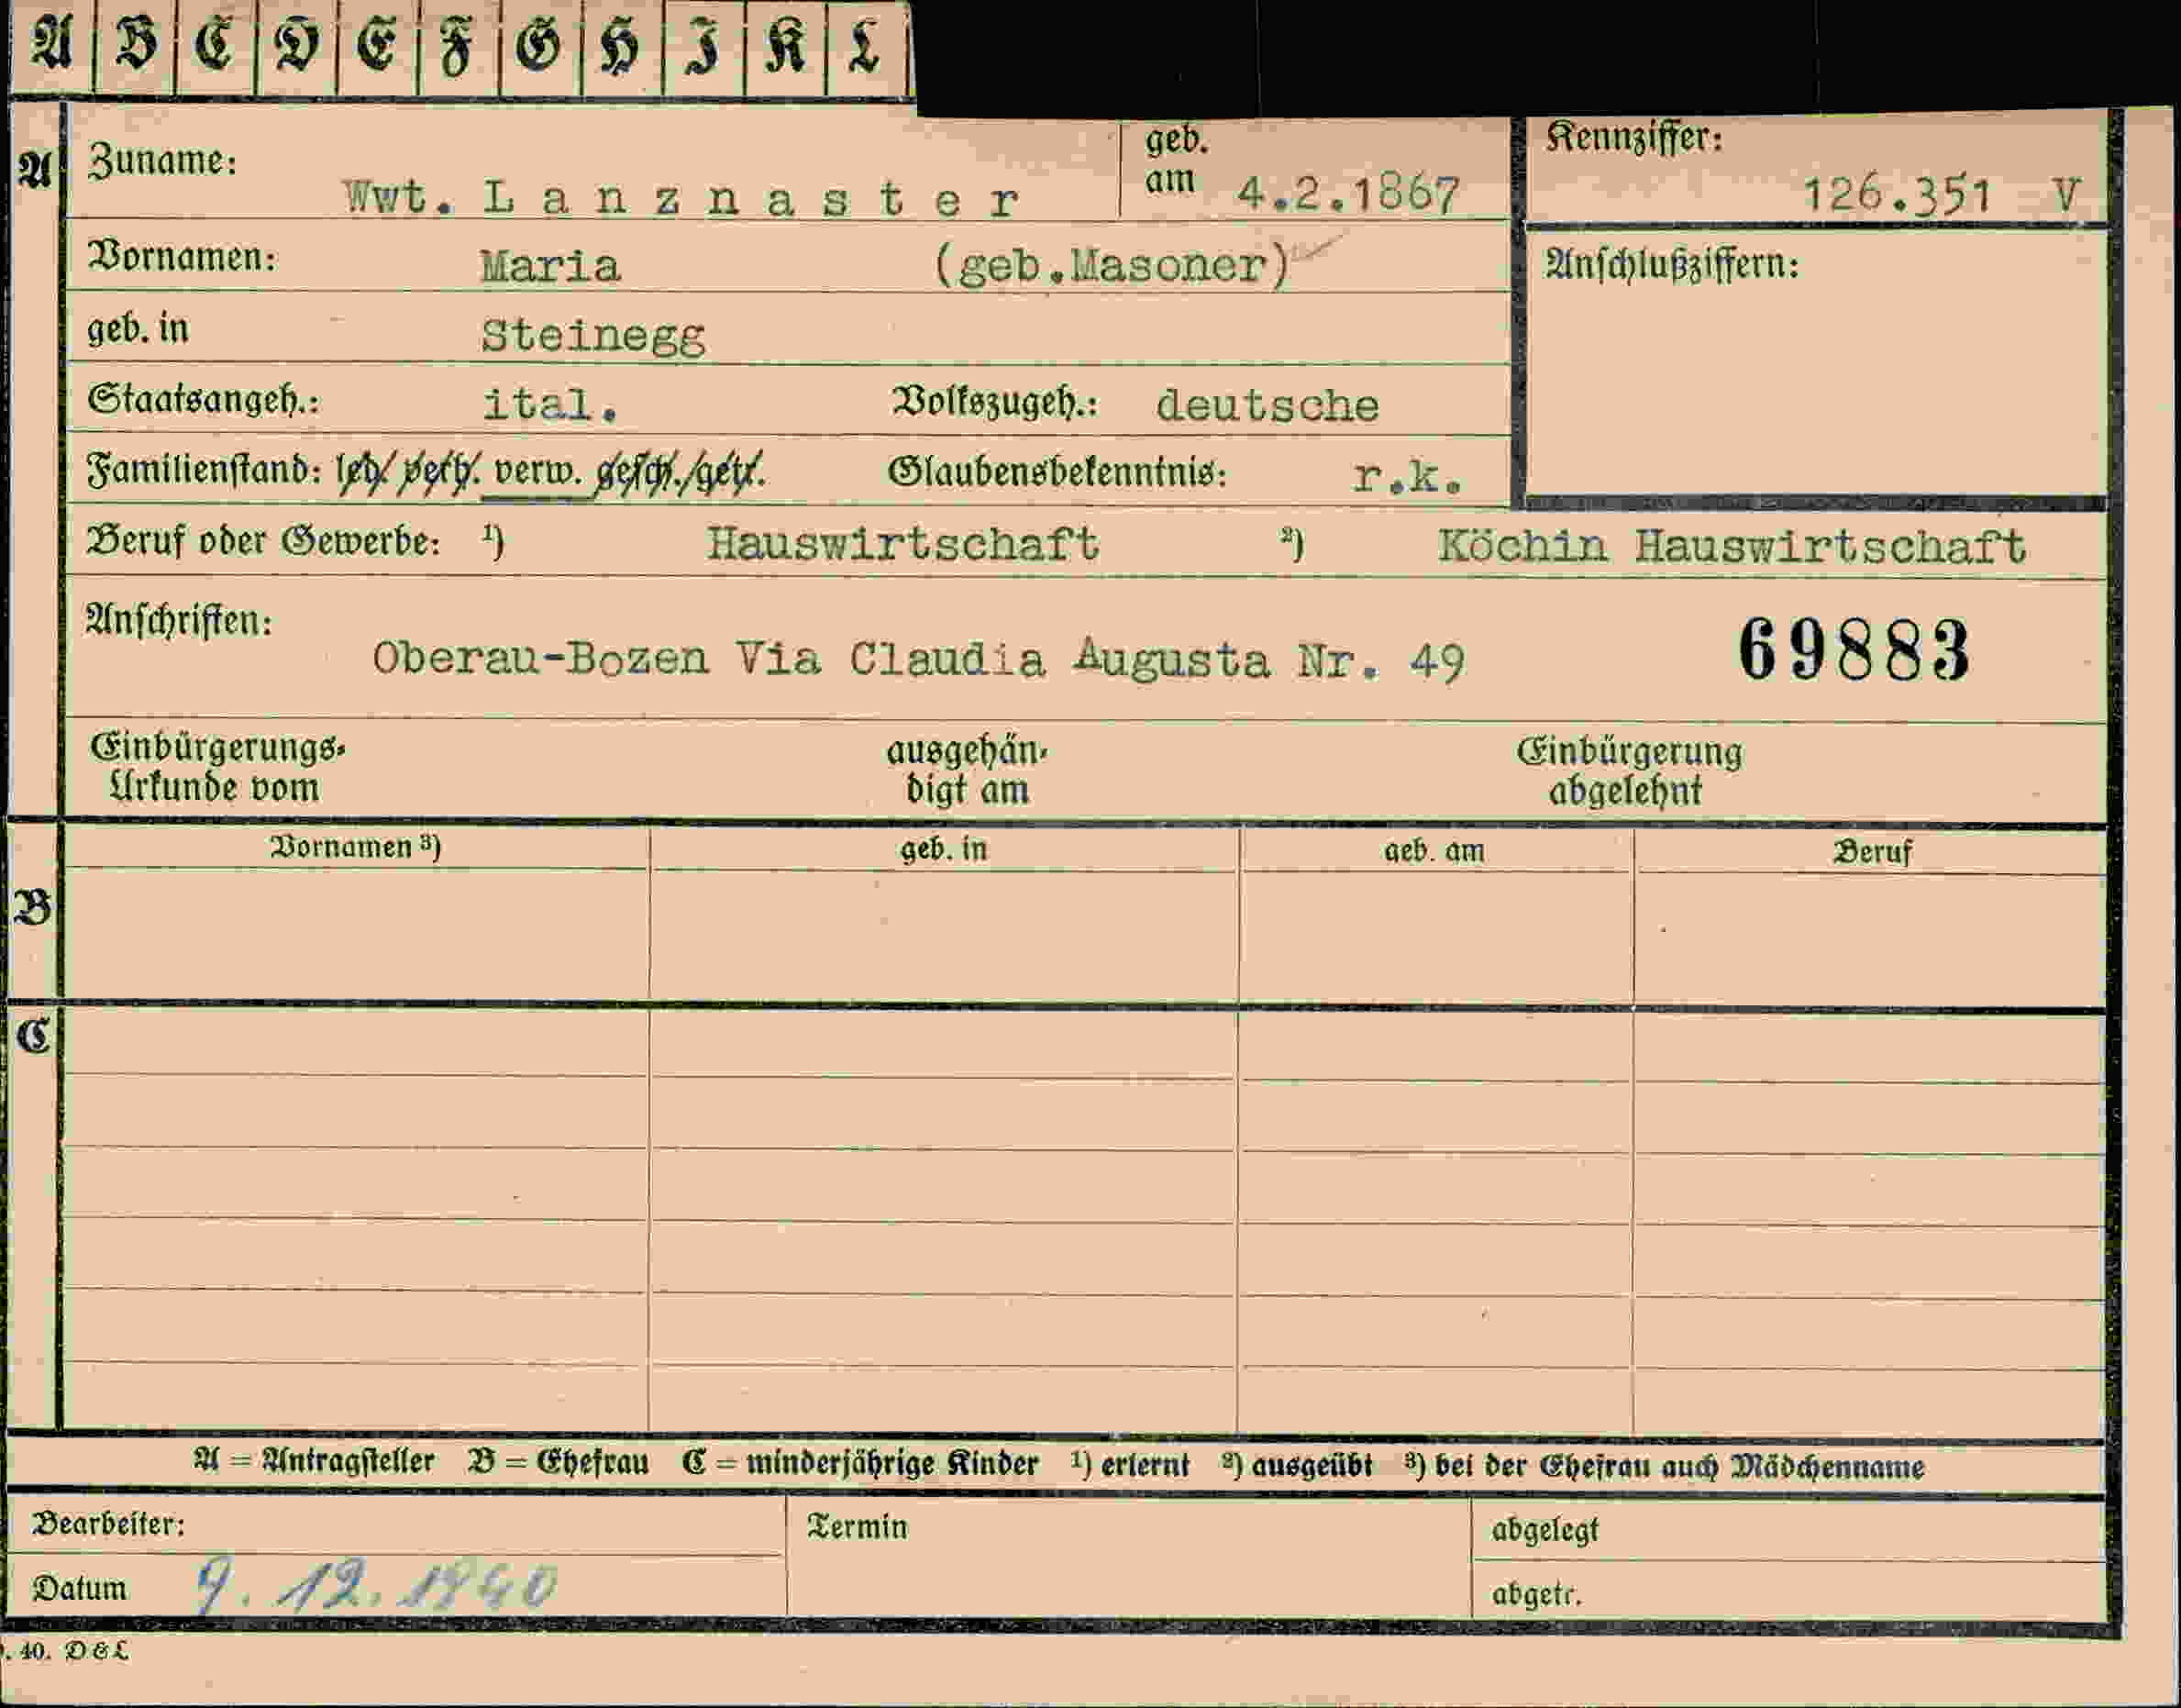 A B C D E F G H I K L
A Zuname: Wwt. L a n z n a s t e r geb. am 4.2.1867 Kennziffer: 126.351 V
Vornamen: Maria (geb.Masoner) Anschlußziffern:
geb. in Steinegg
Staatsangeh.: ital. Volkszugeh.: deutsche
Familienstand: led./ verh. verw. gesch./get. Glaubensbekenntnis: r.k.
Beruf oder Gewerbe: ¹) Hauswirtschaft ²) Köchin Hauswirtschaft
Anschriften: Oberau-Bozen Via Claudia Augusta Nr. 49 69883
Einbürgerungs-Urkunde vom ausgehändigt am Einbürgerung abgelehnt
Vornamen ³) geb. in geb. am Beruf
B
C
A = Antragsteller B = Ehefrau C = minderjährige Kinder ¹) erlernt ²) ausgeübt ³) bei der Ehefrau auch Mädchenname
Bearbeiter: Termin abgelegt
Datum 9. 12. 1940 abgetr.
. 40. D & L